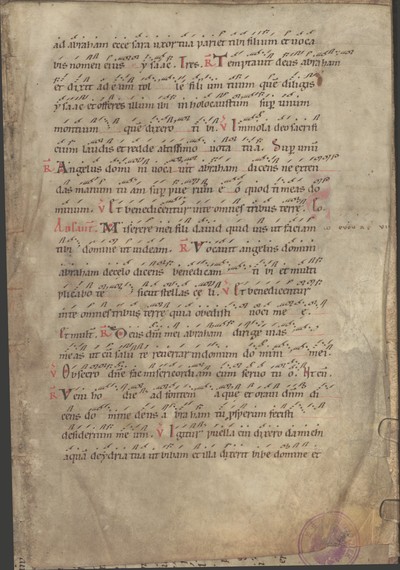 ad abraham ecce sara uxor tua pariet tibi filium et voca
bis nomen eius ysaac. R Temptavit deus abraham
et dixit ad eum tol le filium tuum quem diligis
ysaac et offeres illum ibi in holocaustum super unum
montium quem dixero tibi. V Immola deo sacrifi
cium laudis et redde altissimo vota tua. Super unum
R Angelus domini vocavit abraham dicens ne exten
das manum tuam super puerum eo quod times do
minum. V Et benedicentur in te omnes tribus terre.
Miserere mei fili david quid vis ut faciam
tibi domine ut videam. R Vocavit angelus domini
abraham de celo dicens benedicam tibi et multi
plicabo te sicut stellas celi. V Et benedicentur
in te omnes tribus terre quia obedisti voci mee
Et mult. R Deus domini mei abraham dirige viam
meam ut cum salute revertar in domum domini mei.
V Obsecro domine fac misericordiam cum servo tuo. Ut cu.
R Veni hodie ad fontem aque et oravi dnm di
cens domine deus abraham tu prosperum fecisti
desiderium meum. V Igitur puella cui dixero da mihi
aquam de ydria tua ut bibam et illa dixerit bibe domine et